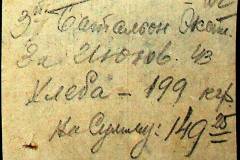 3й Баталион Экат.
За Июнь. 43
Хлеба - 199 кгр
На Сумму: 149 25